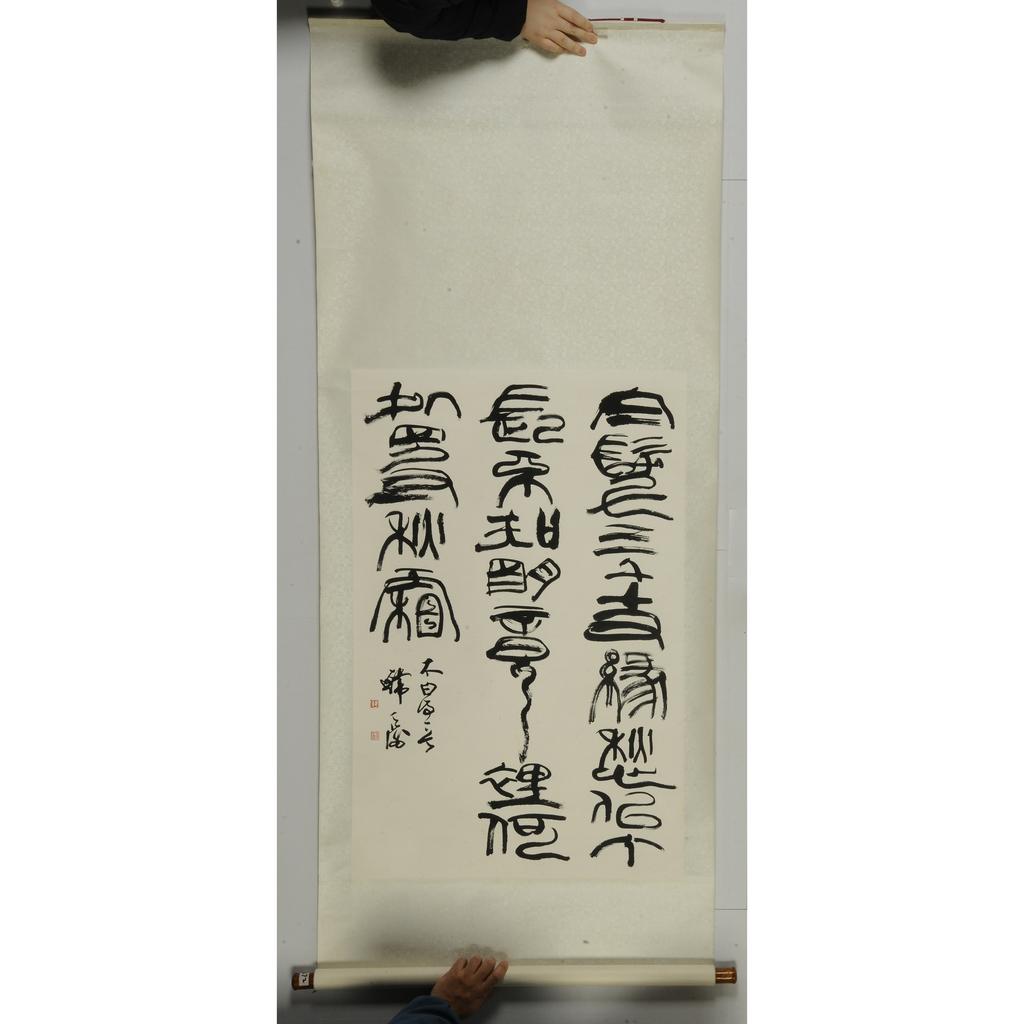 白髮三千丈緣愁似个
長不知明鏡裡何
處得秋霜
太白詩一首
韓天衡